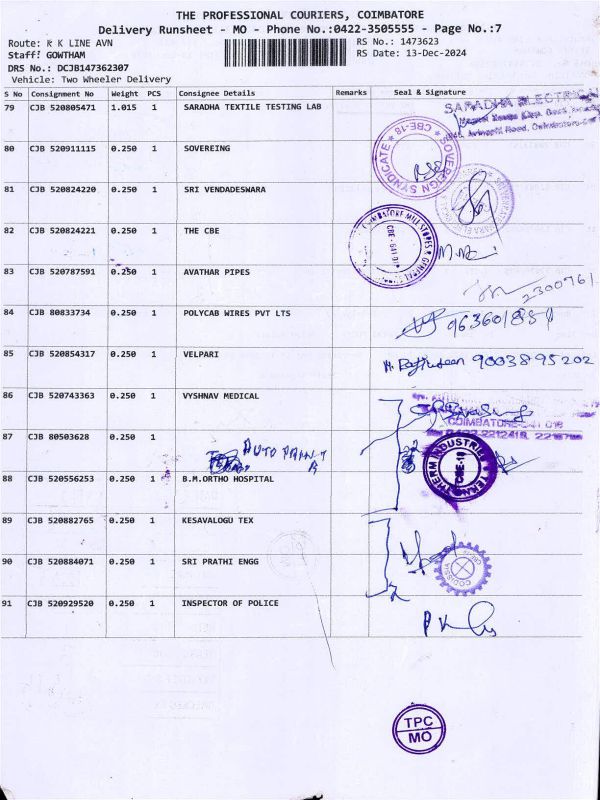 THE PROFESSIONAL COURIERS, COIMBATORE
Delivery Runsheet - MO - Phone No.:0422-3505555 - Page No.:7
Route: R K LINE AVN
RS No.: 1473623
Staff: GOWTHAM
RS Date: 13-Dec-2024
DRS No.: DCJB147362307
Vehicle: Two Wheeler Delivery
S No Consignment No Weight PCS Consignee Details Remarks Seal & Signature
79 CJB 520805471 1.015 1 SARADHA TEXTILE TESTING LAB
SARADHA ELECTRICAL
80 CJB 520911115 0.250 1 SOVEREING
SOVEREIGN SYNDICATE CBE-18
81 CJB 520824220 0.250 1 SRI VENDADESWARA
82 CJB 520824221 0.250 1 THE CBE
83 CJB 520787591 0.250 1 AVATHAR PIPES
2300761
84 CJB 80833734 0.250 1 POLYCAB WIRES PVT LTS
85 CJB 520854317 0.250 1 VELPARI
9003895202
86 CJB 520743363 0.250 1 VYSHNAV MEDICAL
87 CJB 80503628 0.250 1
AUTO PRINT
88 CJB 520556253 0.250 1 B.M.ORTHO HOSPITAL
CBE-18
89 CJB 520882765 0.250 1 KESAVALOGU TEX
90 CJB 520884071 0.250 1 SRI PRATHI ENGG
CODISSIA
91 CJB 520929520 0.250 1 INSPECTOR OF POLICE
TPC
MO